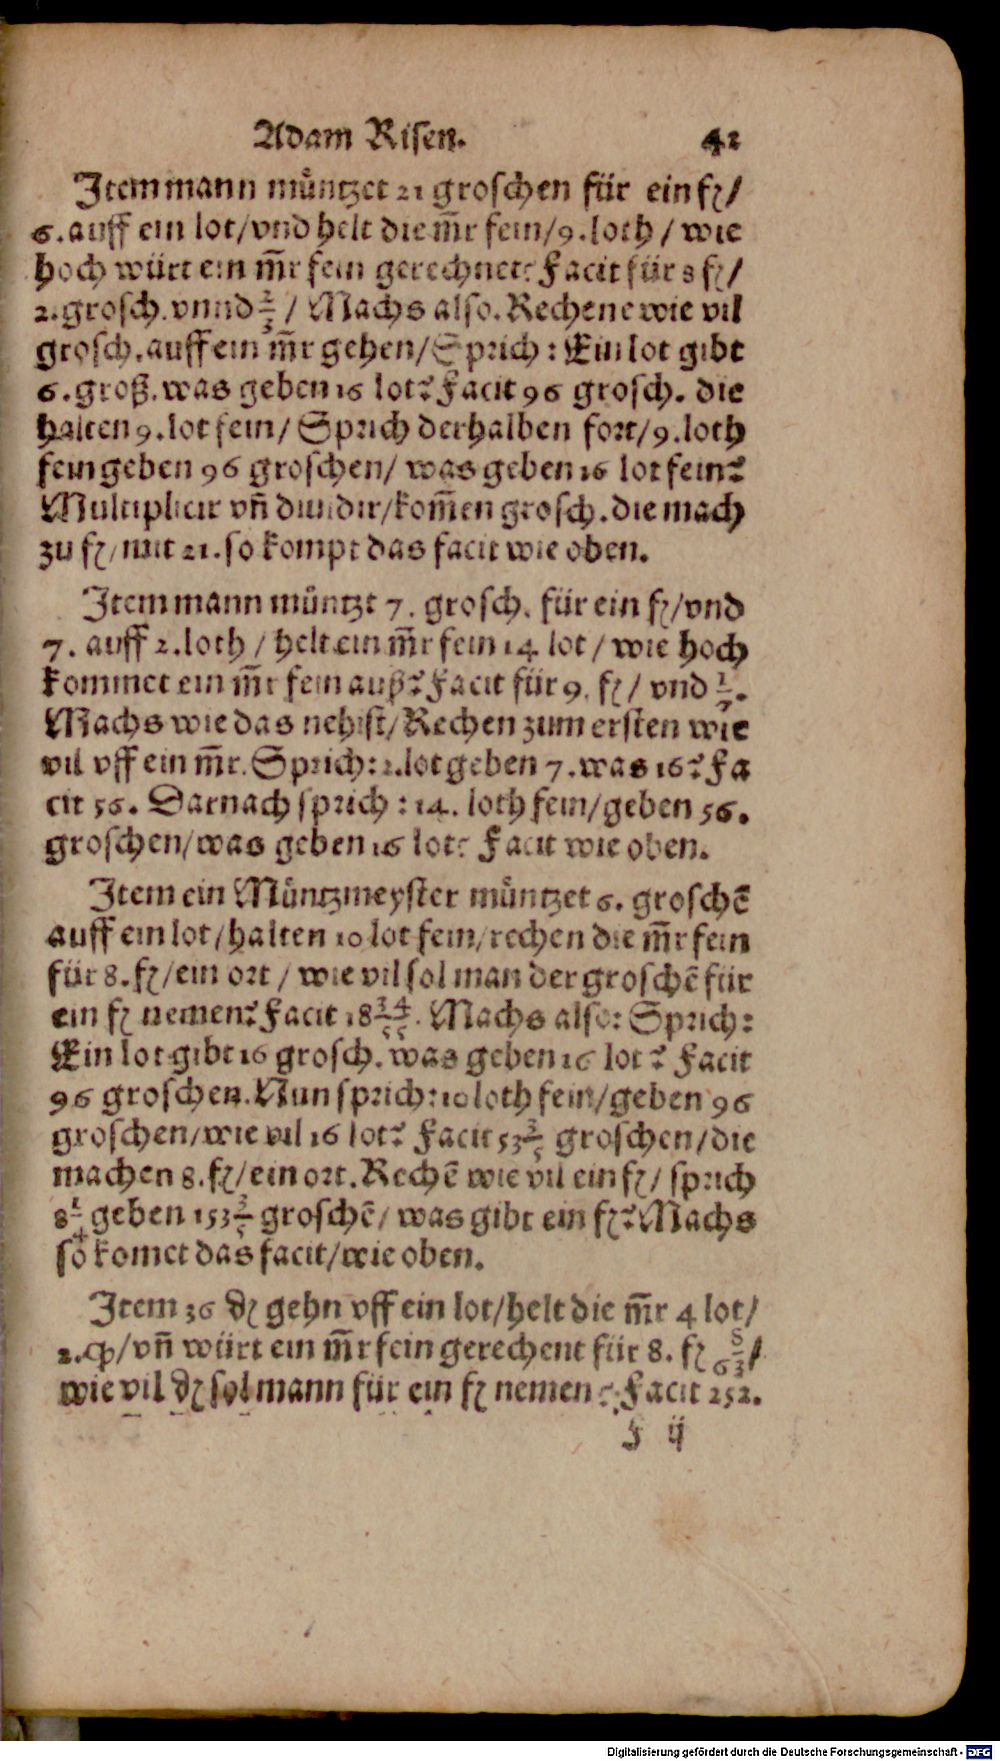 Adam Risen. 42
Item mann müntzet 21 groschen für ein fl/
6. auff ein lot/vnd helt die m̄r fein/9. loth/ wie
hoch würt ein m̄r fein gerechnet? Facit für 8 fl/
2. grosch. vnnd 2/3 / Machs also. Rechene wie vil
grosch. auff ein m̄r gehen/Sprich: Ein lot gibt
6. groß. was geben 16 lot? Facit 96 grosch. die
halten 9. lot fein/ Sprich derhalben fort/9. loth
fein geben 96 groschen/ was geben 16 lot fein?
Multiplicir vn̄ diuidir/kom̄en grosch. die mach
zu fl/mit 21. so kompt das facit wie oben.
Item mann müntzt 7. grosch. für ein fl/vnd
7. auff 2. loth/ helt ein m̄r fein 14 lot/ wie hoch
kommet ein m̄r fein auß? Facit für 9. fl/ vnd 1/7.
Machs wie das nehist/Rechen zum ersten wie
vil vff ein m̄r. Sprich: 2. lot geben 7. was 16? Fa
cit 56. Darnach sprich: 14. loth fein/geben 56.
groschen/was geben 16 lot? Facit wie oben.
Item ein Müntzmeyster müntzet 6. groschē
auff ein lot/halten 10 lot fein/rechen die m̄r fein
für 8. fl/ein ort/ wie vil sol man der groschē für
ein fl nemen? Facit 18 34/55. Machs also: Sprich:
Ein lot gibt 16 grosch. was geben 16 lot? Facit
96 groschen. Nun sprich: 10 loth fein/geben 96
groschen/wie vil 16 lot? Facit 153 3/5 groschen/die
machen 8. fl/ein ort. Rechē wie vil ein fl/ sprich
8 1/4 geben 153 3/5 groschē/ was gibt ein fl? Machs
so komet das facit/wie oben.
Item 36 ₰ gehn vff ein lot/helt die m̄r 4 lot/
2. qͦ/vn̄ würt ein m̄r fein gerechent für 8. fl 8/63/
wie vil ₰ sol mann für ein fl nemen? Facit 252.
F ij
Digitalisierung gefördert durch die Deutsche Forschungsgemeinschaft - DFG